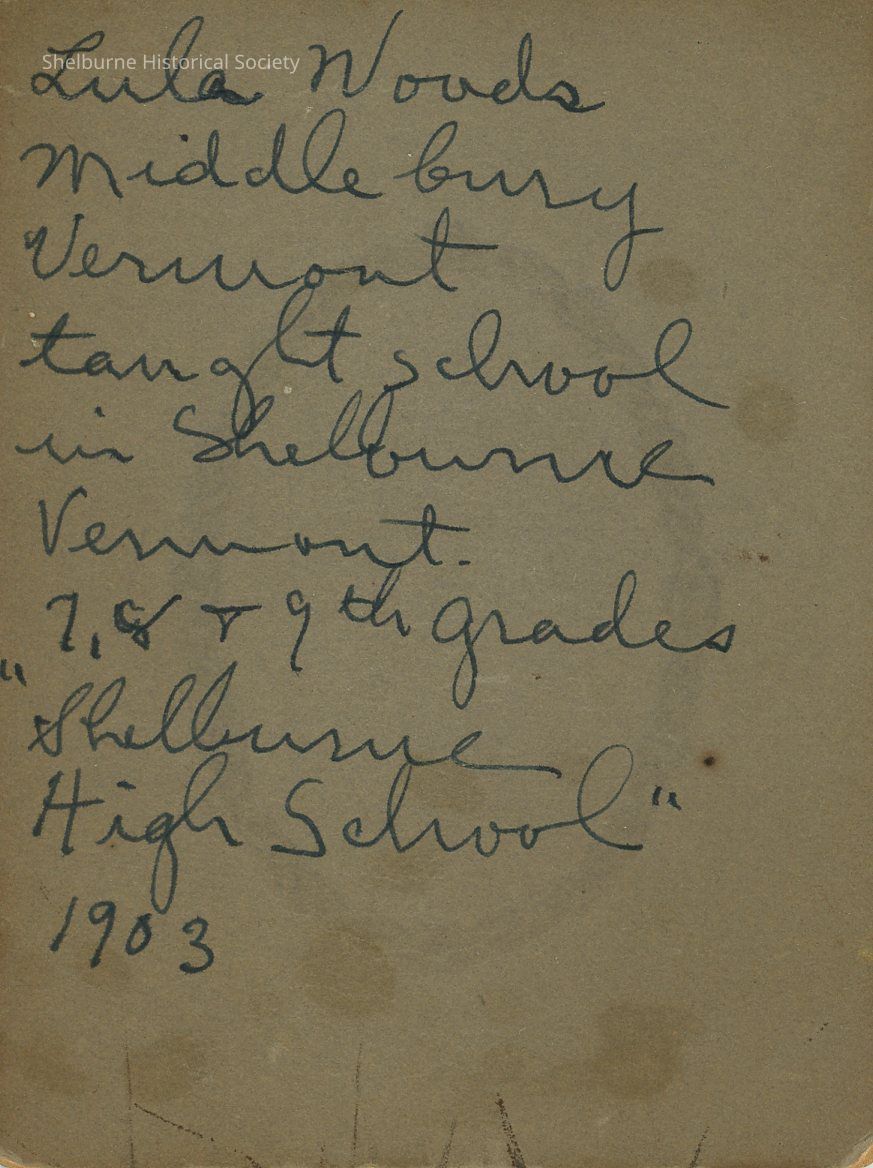 Shelburne Historical Society
Lula Woods
Middlebury
Vermont
taught school
in Shelburne
Vermont.
7, 8 + 9th grades
"Shelburne
High School"
1903